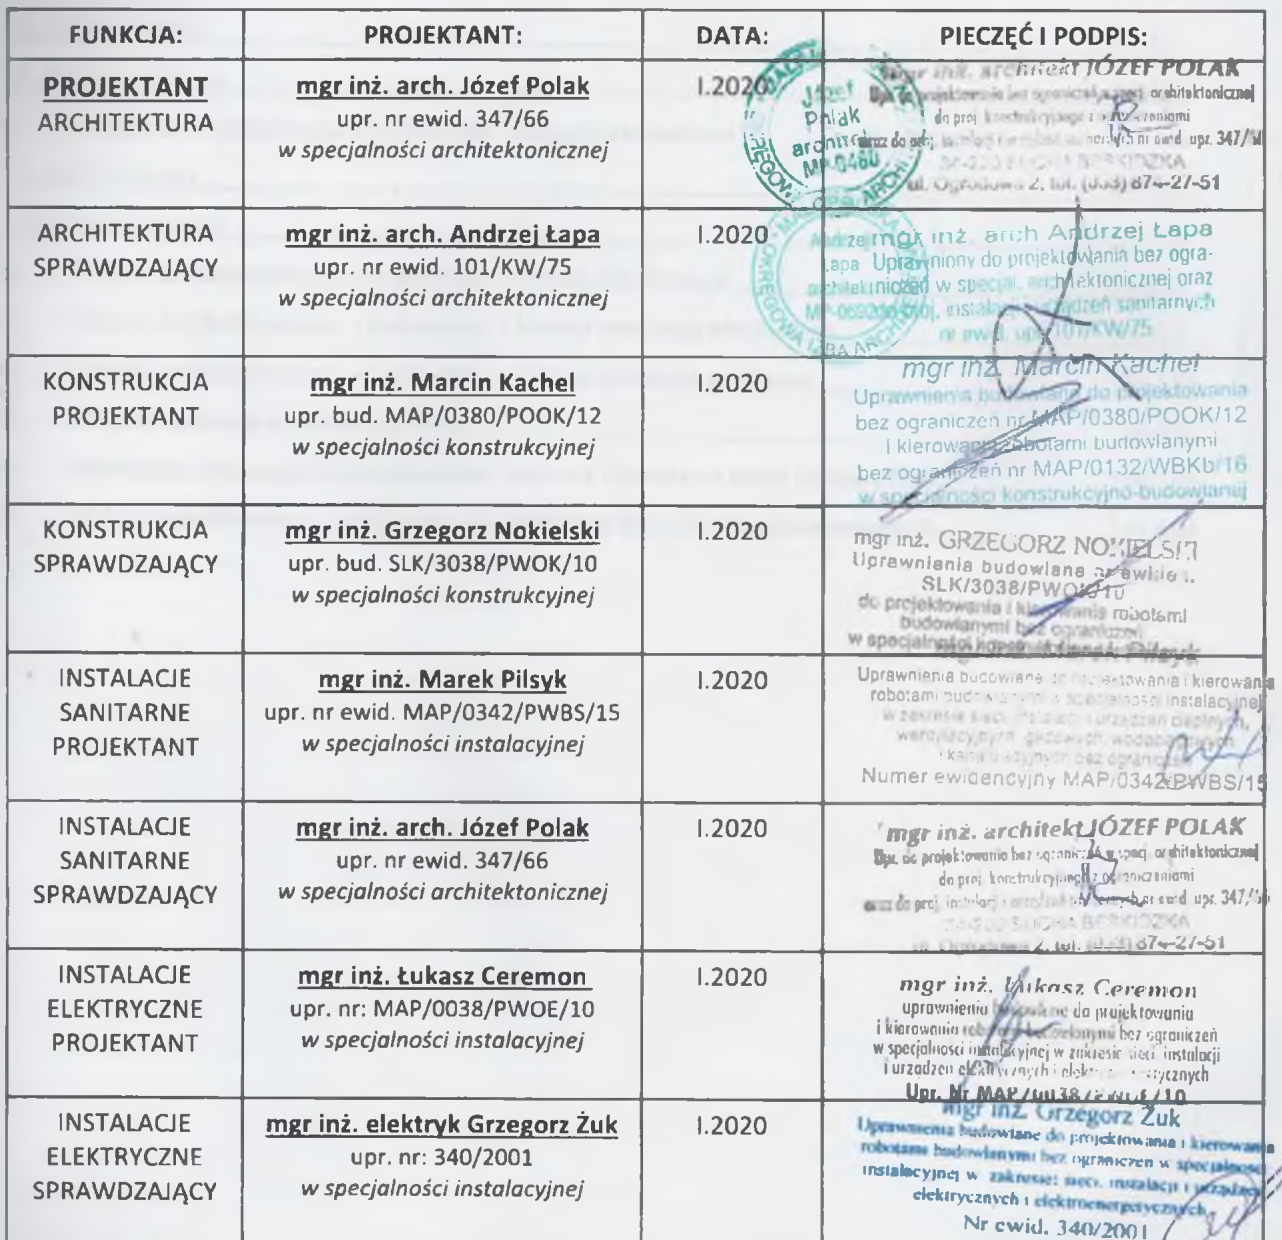 FUNKCJA: PROJEKTANT: DATA: PIECZĘĆ I PODPIS:
PROJEKTANT
ARCHITEKTURA
mgr inż. arch. Józef Polak
upr. nr ewid. 347/66
w specjalności architektonicznej
I.2020
Józef
Polak
architekt
MP-0460
mgr inż. architekt JÓZEF POLAK
do proj. konstrukcyjnego z ograniczeniami
upr. 347/66
ul. Ogrodowa 2, tel. (033) 874-27-51
ARCHITEKTURA
SPRAWDZAJĄCY
mgr inż. arch. Andrzej Łapa
upr. nr ewid. 101/KW/75
w specjalności architektonicznej
I.2020
mgr inż. arch Andrzej Łapa
Uprawniony do projektowania bez ogra-
niczeń w specjal. architektonicznej oraz
proj. instalacji i urządzeń sanitarnych
nr ewid. upr. 101/KW/75
KONSTRUKCJA
PROJEKTANT
mgr inż. Marcin Kachel
upr. bud. MAP/0380/POOK/12
w specjalności konstrukcyjnej
I.2020
mgr inż. Marcin Kachel
Uprawnienia budowlane do projektowania
bez ograniczeń nr MAP/0380/POOK/12
i kierowania robotami budowlanymi
bez ograniczeń nr MAP/0132/WBKb/16
w specjalności konstrukcyjno-budowlanej
KONSTRUKCJA
SPRAWDZAJĄCY
mgr inż. Grzegorz Nokielski
upr. bud. SLK/3038/PWOK/10
w specjalności konstrukcyjnej
I.2020
mgr inż. GRZEGORZ NOKIELSKI
Uprawnienia budowlane nr ewid.
SLK/3038/PWOK/10
do projektowania i kierowania robotami
budowlanymi bez ograniczeń
w specjalności
INSTALACJE
SANITARNE
PROJEKTANT
mgr inż. Marek Pilsyk
upr. nr ewid. MAP/0342/PWBS/15
w specjalności instalacyjnej
I.2020
mgr inż. Marek Pilsyk
Uprawnienia budowlane do projektowania i kierowania
robotami budowlanymi w specjalności instalacyjnej
w zakresie sieci, instalacji i urządzeń cieplnych,
wentylacyjnych, gazowych, wodociągowych
i kanalizacyjnych bez ograniczeń
Numer ewidencyjny MAP/0342/PWBS/15
INSTALACJE
SANITARNE
SPRAWDZAJĄCY
mgr inż. arch. Józef Polak
upr. nr ewid. 347/66
w specjalności architektonicznej
I.2020
mgr inż. architekt JÓZEF POLAK
Upr. do projektowania bez ograniczeń w specj. architektonicznej
do proj. konstrukcyjnego z ograniczeniami
oraz do proj. instalacji nr ewid. upr. 347/66
34-200 SUCHA BESKIDZKA
ul. Ogrodowa 2, tel. (033) 874-27-51
INSTALACJE
ELEKTRYCZNE
PROJEKTANT
mgr inż. Łukasz Ceremon
upr. nr: MAP/0038/PWOE/10
w specjalności instalacyjnej
I.2020
mgr inż. Łukasz Ceremon
uprawnienia do projektowania
i kierowania robotami budowlanymi bez ograniczeń
w specjalności instalacyjnej w zakresie sieci, instalacji
i urządzeń elektrycznych i
Upr. Nr MAP/0038/PWOE/10
INSTALACJE
ELEKTRYCZNE
SPRAWDZAJĄCY
mgr inż. elektryk Grzegorz Żuk
upr. nr: 340/2001
w specjalności instalacyjnej
I.2020
mgr inż. Grzegorz Żuk
Uprawnienia budowlane do projektowania i kierowania
robotami budowlanymi bez ograniczeń w specjalności
instalacyjnej w zakresie: sieci, instalacji i urządzeń
elektrycznych i elektroenergetycznych
Nr ewid. 340/2001